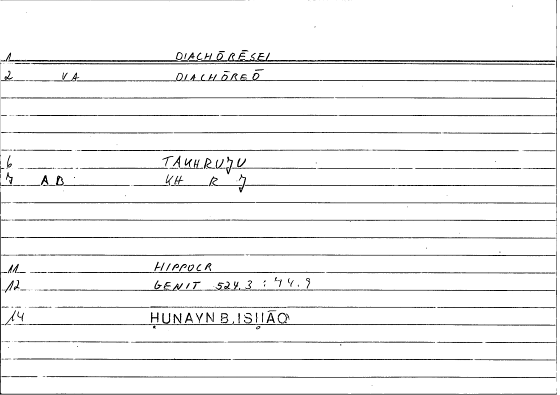 1 DIACHŌRĒSEI
2 VA DIACHŌREŌ
6 TAKHRUJU
7 AB KH R J
11 HIPPOCR
12 GENIT 524.3 : 44.9
14 ḤUNAYN B. ISḤĀQ